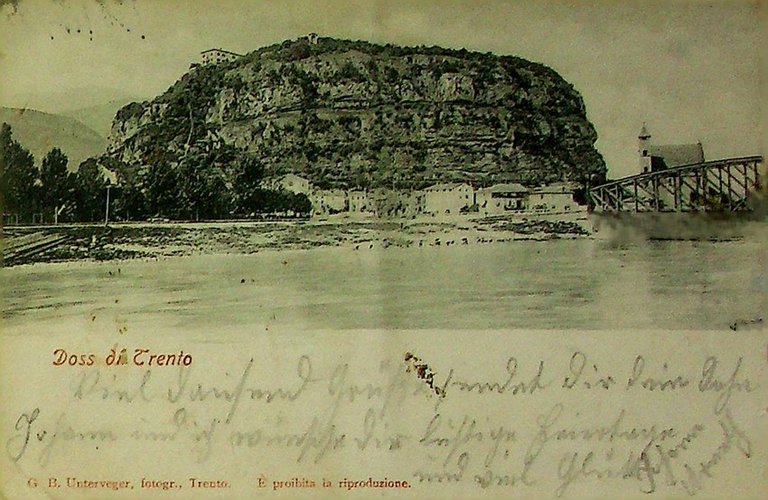 Doss di Trento
Viel Tausend Grüße sendet dir dein Sohn
Johann und ich wünsche dir lustige Feiertage
und viel Glück
G. B. Unterveger, fotogr., Trento. È proibita la riproduzione.